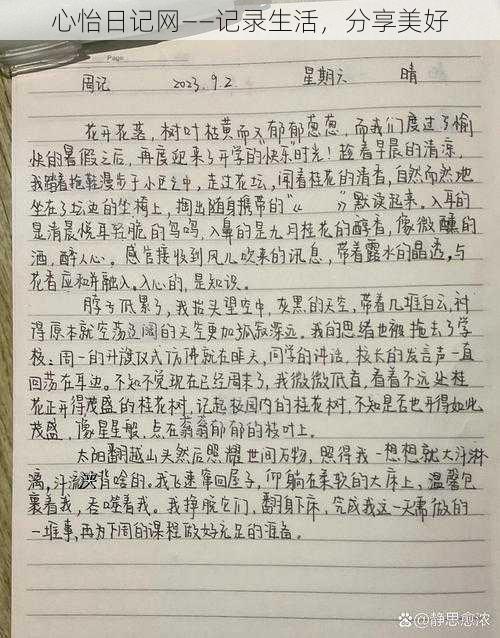 心怡日记网——记录生活，分享美好
Page
周记 2023.9.2 星期六 晴
花开花落，树叶枯黄而又郁郁葱葱，而我们度过了愉
快的暑假之后，再度迎来了开学的“快乐”时光！趁着早晨的清凉，
我踏着拖鞋漫步于小区之中，走过花坛，闻着桂花的清香，自然而然地
坐在了坛边的坐椅上，掏出随身携带的“《 》”默读起来。入耳的
是清晨悦耳轻脆的鸟鸣，入鼻的是九月桂花的醇香，像微醺的
酒，醉人心。感官接收到风儿吹来的讯息，带着露水的晶透，与
花香应和并融入。入心的，是知识。
脖子低累了，我抬头望空中，灰黑的天空，带着几堆白云，衬
得原本就空荡辽阔的天空更加孤寂深远。我的思绪也被拖去了学
校：周一的升旗仪式仿佛就在昨天，同学的讲话，校长的发言声一直
回荡在耳边。不知不觉现在已经周末了，我微微低首，看着不远处桂
花正开得茂盛的桂花树，记起校园内的桂花树，不知是否也开得如此
茂盛，像星星般，点在蓊蓊郁郁的枝叶上。
太阳翻越山头然后照耀世间万物，照得我一想想就大汗淋
漓，汗流浃背啥的。我飞速窜回屋子，仰躺在柔软的大床上，温馨包
裹着我，吞噬着我。我挣脱它们，翻身下床，完成我这一天需做的
一堆事，再为下周的课程做好充足的准备。
@静思愈浓